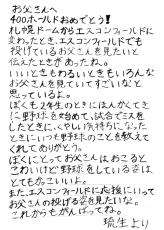 お父さんへ
400ホールドおめでとう！
札幌ドームからエスコンフィールドに
変わったとき、エスコンフィールドでも
投げているお父さんを見たいと
伝えたときがあったね。
いいときもわるいときもいろんな
お父さんを見ていてすごいなと
思っているよ。
ぼくも2年生のときにほんかくてき
に野球を始めて、試合でミスを
したときに、くやしい気持ちになった
ときにいつも野球のことを教えて
くれてありがとう。
ぼくにとってお父さんはおこると
こわいけど野球をしている姿は
とてもかっこいいよ。
また、エスコンフィールドに応援にいって
お父さんの投げる姿を見たいな。
これからもがんばってね。
琉生より